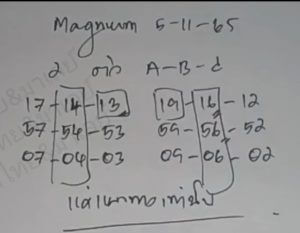 Magnum 5-11-65
2 ตัว A-B-C
17-14-13 19-16-12
57-54-53 59-56-52
07-04-03 09-06-02